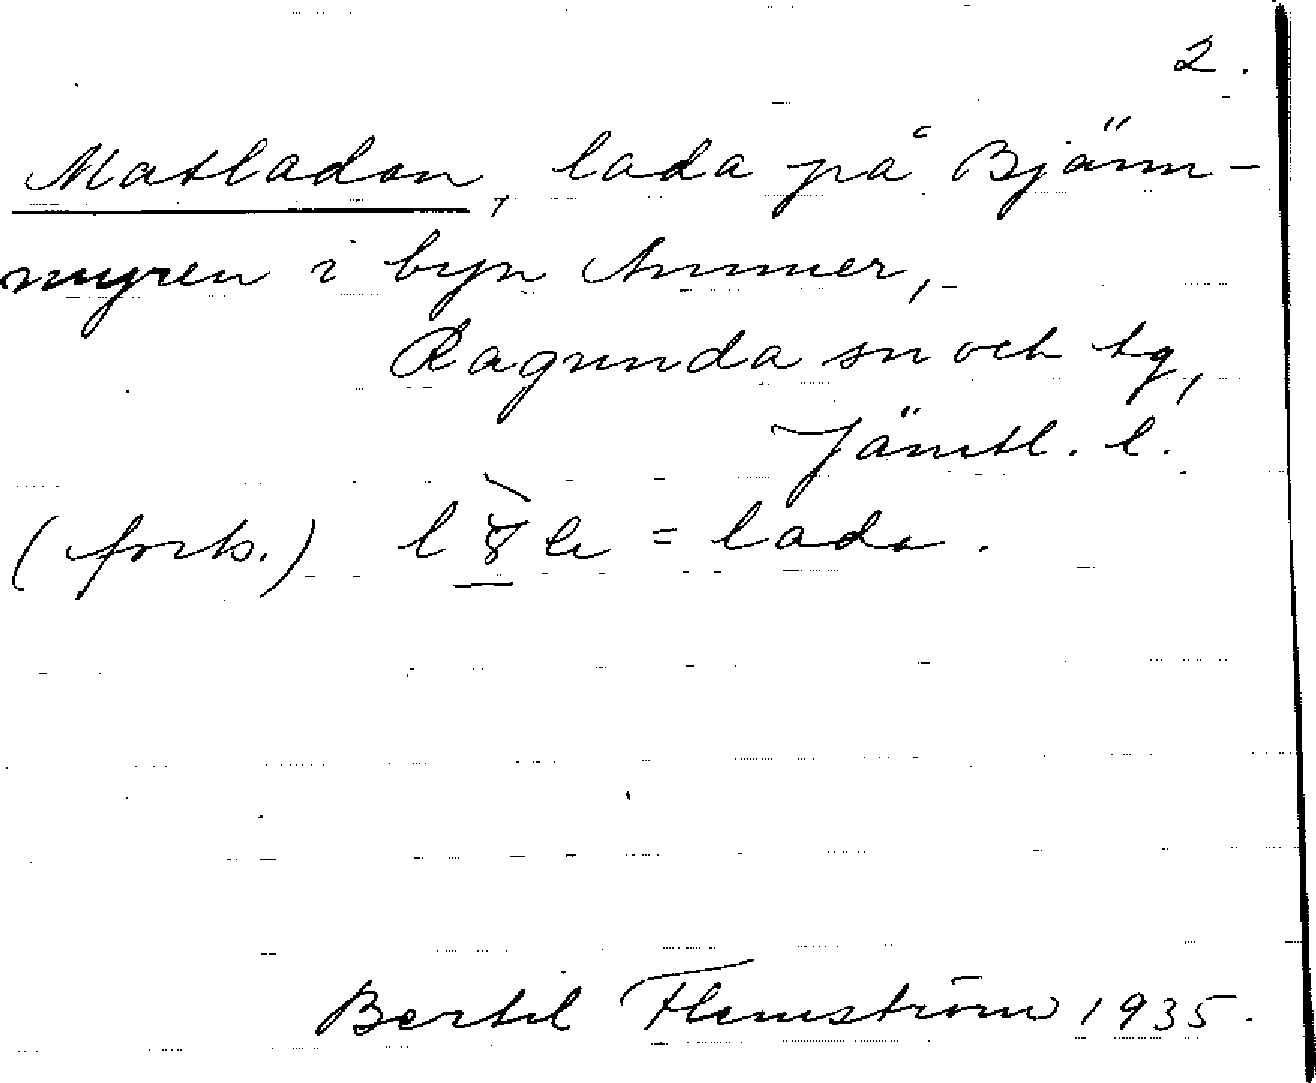 2.
Matladan, lada på Björn-
myren i byn Ammer,
Ragunda sn och tg,
Jämtl. l.
(forts.) = lada.
Bertil Flemström 1935.